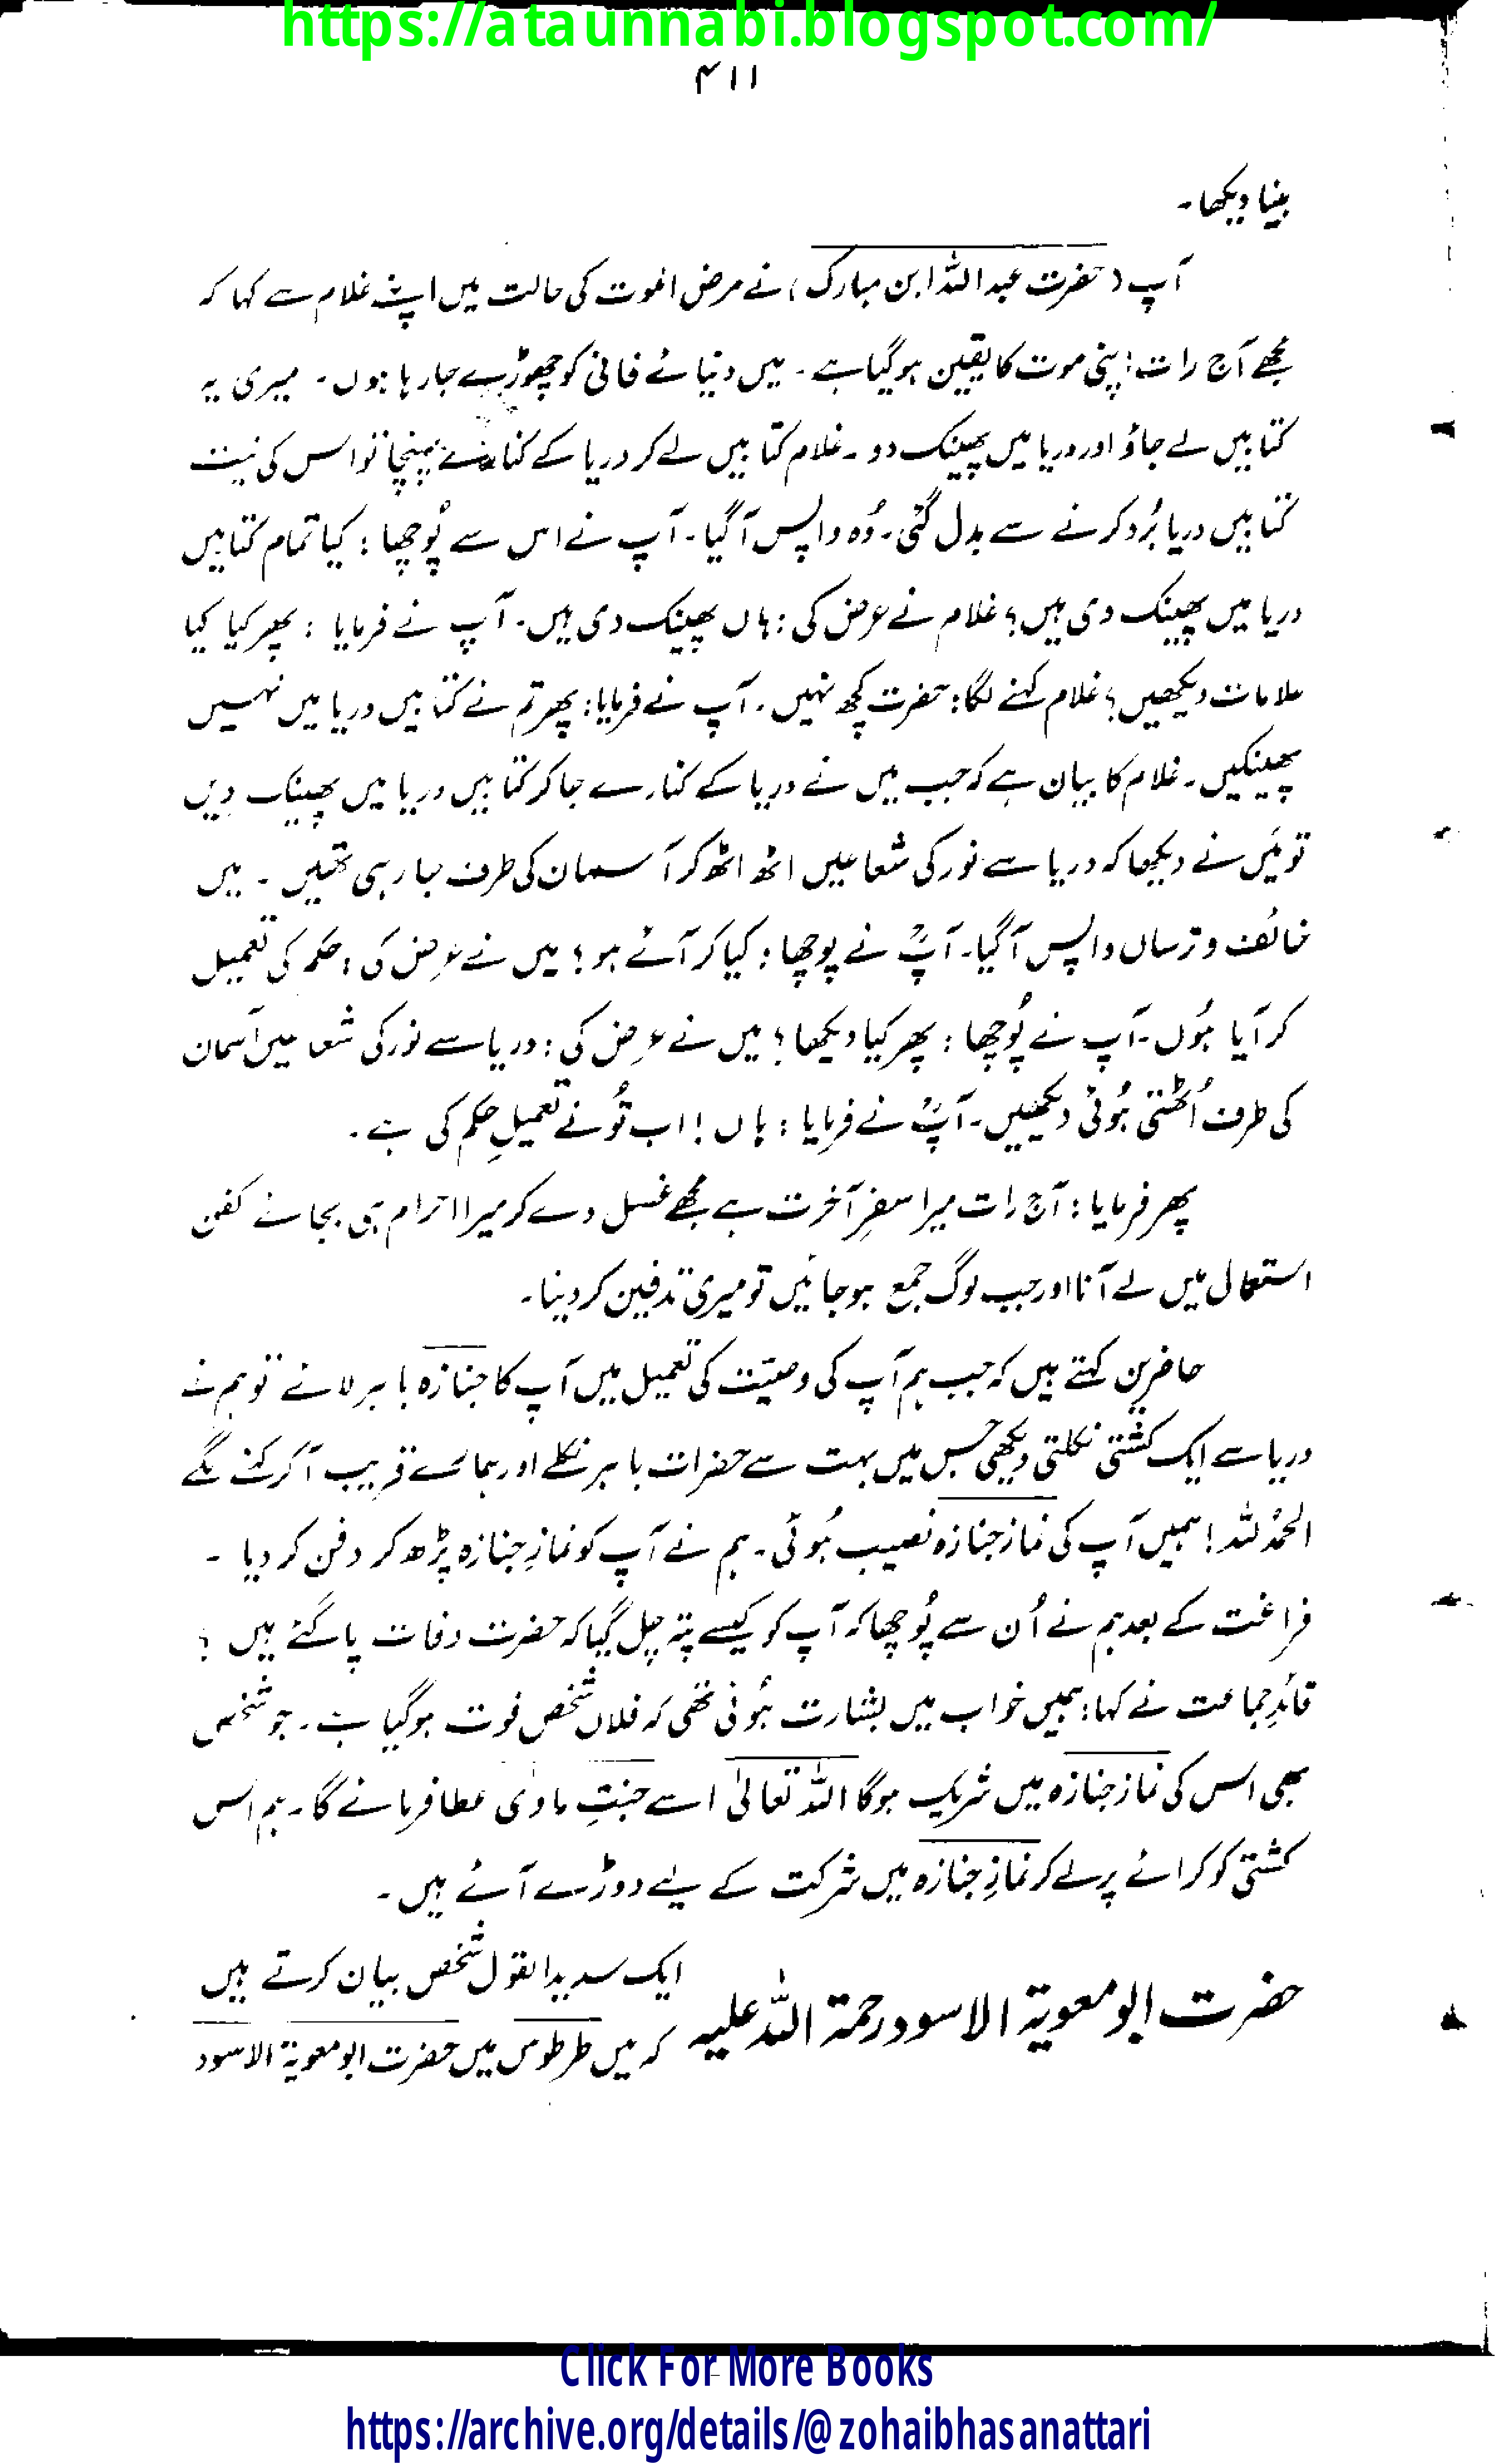 https://ataunnabi.blogspot.com/
۴۱۱
بینا دیکھا۔
آپ (حضرت عبد اللہ ابن مبارک) نے مرض الموت کی حالت میں اپنے غلام سے کہا کہ
مجھے آج رات اپنی موت کا یقین ہو گیا ہے۔ میں دنیائے فانی کو چھوڑے جا رہا ہوں۔ میری یہ
کتابیں لے جاؤ اور دریا میں پھینک دو۔ غلام کتابیں لے کر دریا کے کنارے پہنچا تو اس کی نیت
کتابیں دریا بُرد کرنے سے بدل گئی۔ وُہ واپس آ گیا۔ آپ نے اس سے پُوچھا: کیا تمام کتابیں
دریا میں پھینک دی ہیں؟ غلام نے عرض کی: ہاں پھینک دی ہیں۔ آپ نے فرمایا: پھر کیا کیا
علامات دیکھیں؟ غلام کہنے لگا: حضرت کچھ نہیں۔ آپ نے فرمایا: پھر تم نے کتابیں دریا میں نہیں
پھینکیں۔ غلام کا بیان ہے کہ جب میں نے دریا کے کنارے جا کر کتابیں دریا میں پھینک دِیں
تو مَیں نے دیکھا کہ دریا سے نور کی شعاعیں اٹھ اٹھ کر آسمان کی طرف جا رہی تھیں۔ میں
خائف و ترساں واپس آ گیا۔ آپؒ نے پوچھا: کیا کر آئے ہو؟ میں نے عرض کی: حکم کی تعمیل
کر آیا ہُوں۔ آپ نے پُوچھا: پھر کیا دیکھا؟ میں نے عرض کی: دریا سے نور کی شعاعیں آسمان
کی طرف اُٹھتی ہُوئی دیکھیں۔ آپؒ نے فرمایا: ہاں! اب تُو نے تعمیلِ حکم کی ہے۔
پھر فرمایا: آج رات میرا سفرِ آخرت ہے مجھے غسل دے کر میرا احرام ہی بجائے کفن
استعمال میں لے آنا اور جب لوگ جمع ہو جائیں تو میری تدفین کر دینا۔
حاضرین کہتے ہیں کہ جب ہم آپ کی وصیّت کی تعمیل میں آپ کا جنازہ باہر لائے تو ہم نے
دریا سے ایک کشتی نکلتی دیکھی جس میں بہت سے حضرات باہر نکلے اور ہمارے قریب آ کر کہنے لگے
الحمدُ للہ! ہمیں آپ کی نماز جنازہ نصیب ہُوئی۔ ہم نے آپ کو نمازِ جنازہ پڑھ کر دفن کر دیا۔
فراغت کے بعد ہم نے اُن سے پُوچھا کہ آپ کو کیسے پتہ چل گیا کہ حضرت وفات پا گئے ہیں؟
قائدِ جماعت نے کہا: ہمیں خواب میں بشارت ہُوئی تھی کہ فلاں شخص فوت ہو گیا ہے۔ جو شخص
بھی اس کی نماز جنازہ میں شریک ہوگا اللہ تعالیٰ اسے جنتِ ماوٰی عطا فرمائے گا۔ ہم اس
کشتی کو کرائے پر لے کر نمازِ جنازہ میں شرکت کے لیے دوڑے آئے ہیں۔
حضرت ابو معویۃ الاسود رحمۃ اللہ علیہ
ایک سدید القول شخص بیان کرتے ہیں
کہ میں طرطوس میں حضرت ابو معویۃ الاسود
Click For More Books
https://archive.org/details/@zohaibhasanattari